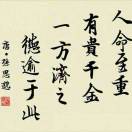 人命至重
有貴千金
一方濟之
德逾于此
唐·孫思邈